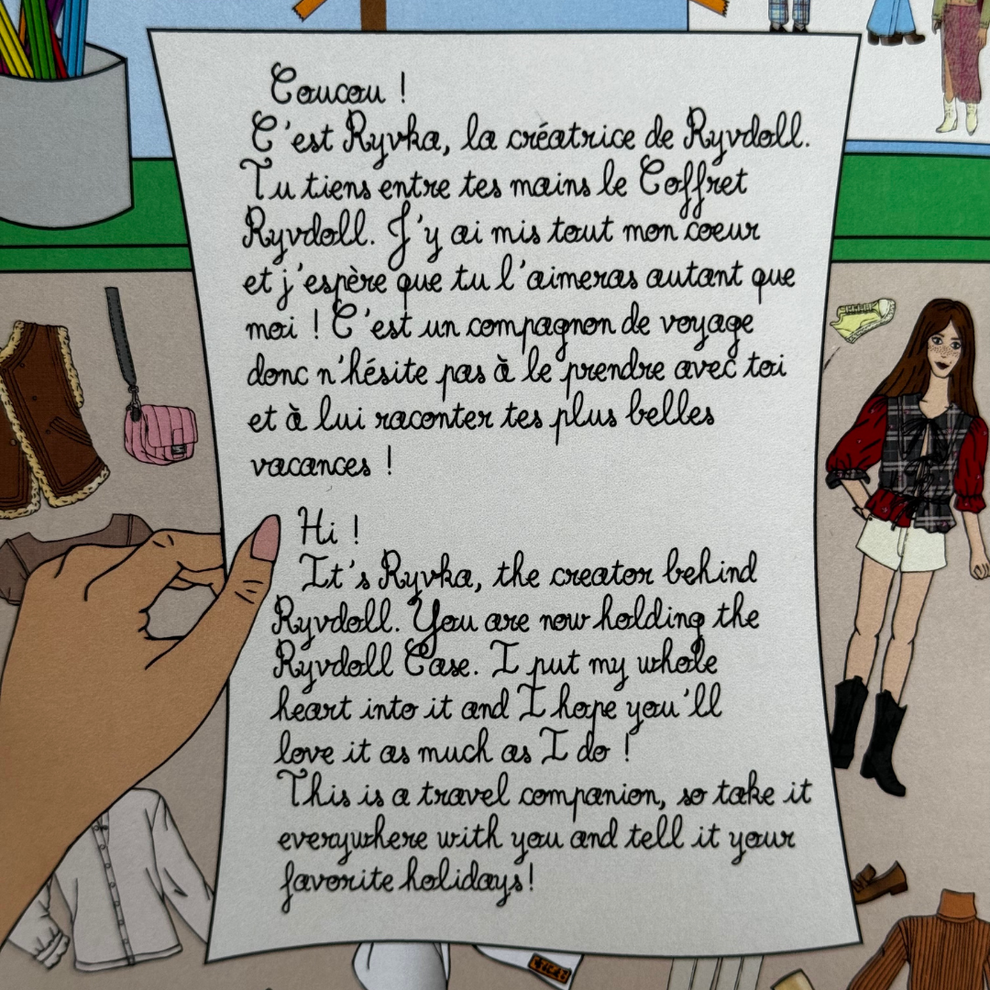 Coucou !
C'est Ryvka, la créatrice de Ryvdoll.
Tu tiens entre tes mains le Coffret
Ryvdoll. J'y ai mis tout mon coeur
et j'espère que tu l'aimeras autant que
moi ! C'est un compagnon de voyage
donc n'hésite pas à le prendre avec toi
et à lui raconter tes plus belles
vacances !
Hi !
It's Ryvka, the creator behind
Ryvdoll. You are now holding the
Ryvdoll Case. I put my whole
heart into it and I hope you'll
love it as much as I do !
This is a travel companion, so take it
everywhere with you and tell it your
favorite holidays!